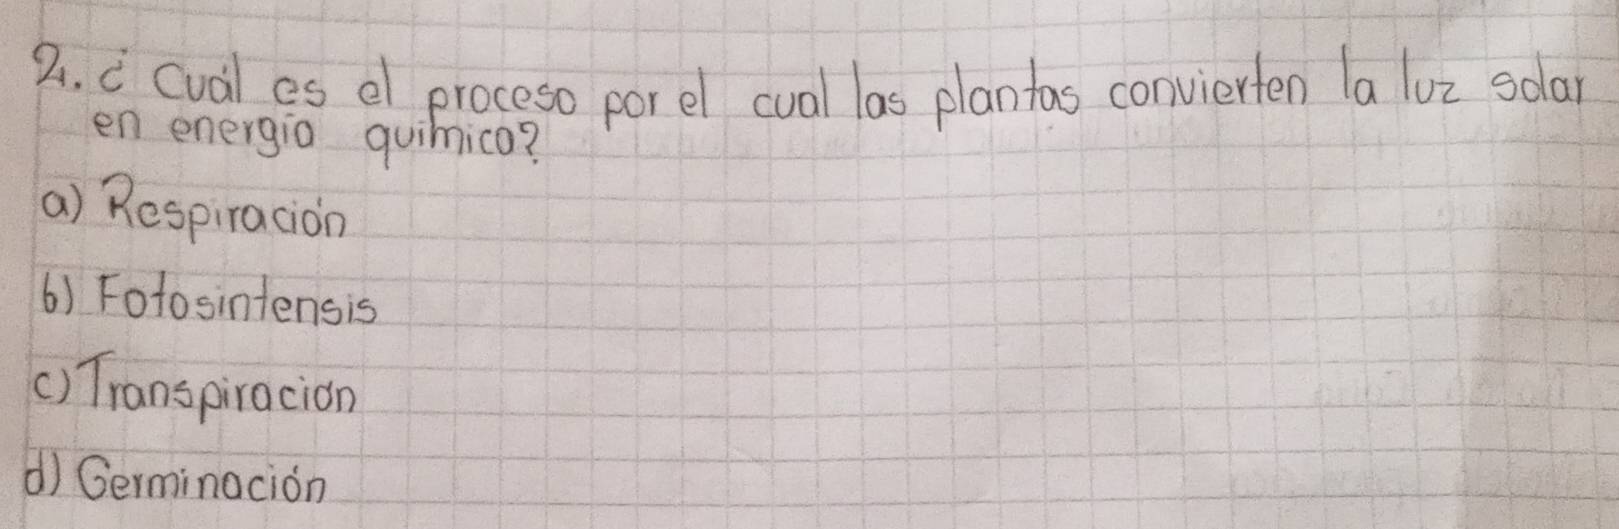 2. ¿Cuál es el proceso por el cual las plantas convierten la luz solar
en energia quimica?
a) Respiración
b) Fotosintensis
c) Transpiración
d) Germinación